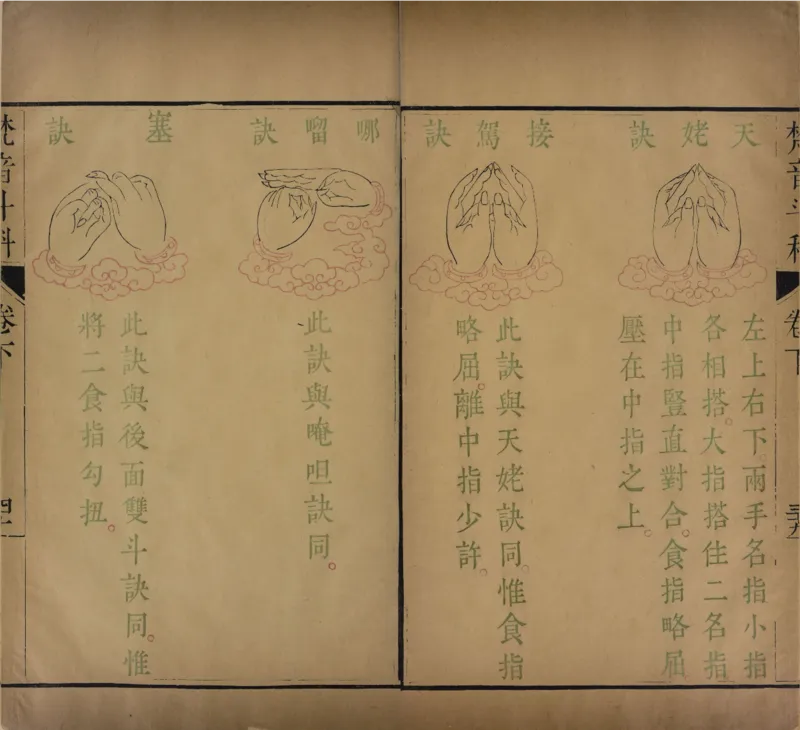 梵音斗科
卷下
天姥訣
左上右下兩手名指小指
各相搭。大指搭住二名指
中指豎直對合。食指略屈
壓在中指之上。
接駕訣
此訣與天姥訣同。惟食指
略屈。離中指少許。
哪㗰訣
此訣與唵呾訣同。
塞訣
此訣與後面雙斗訣同。惟
將二食指勾扭。
梵音斗科
卷下